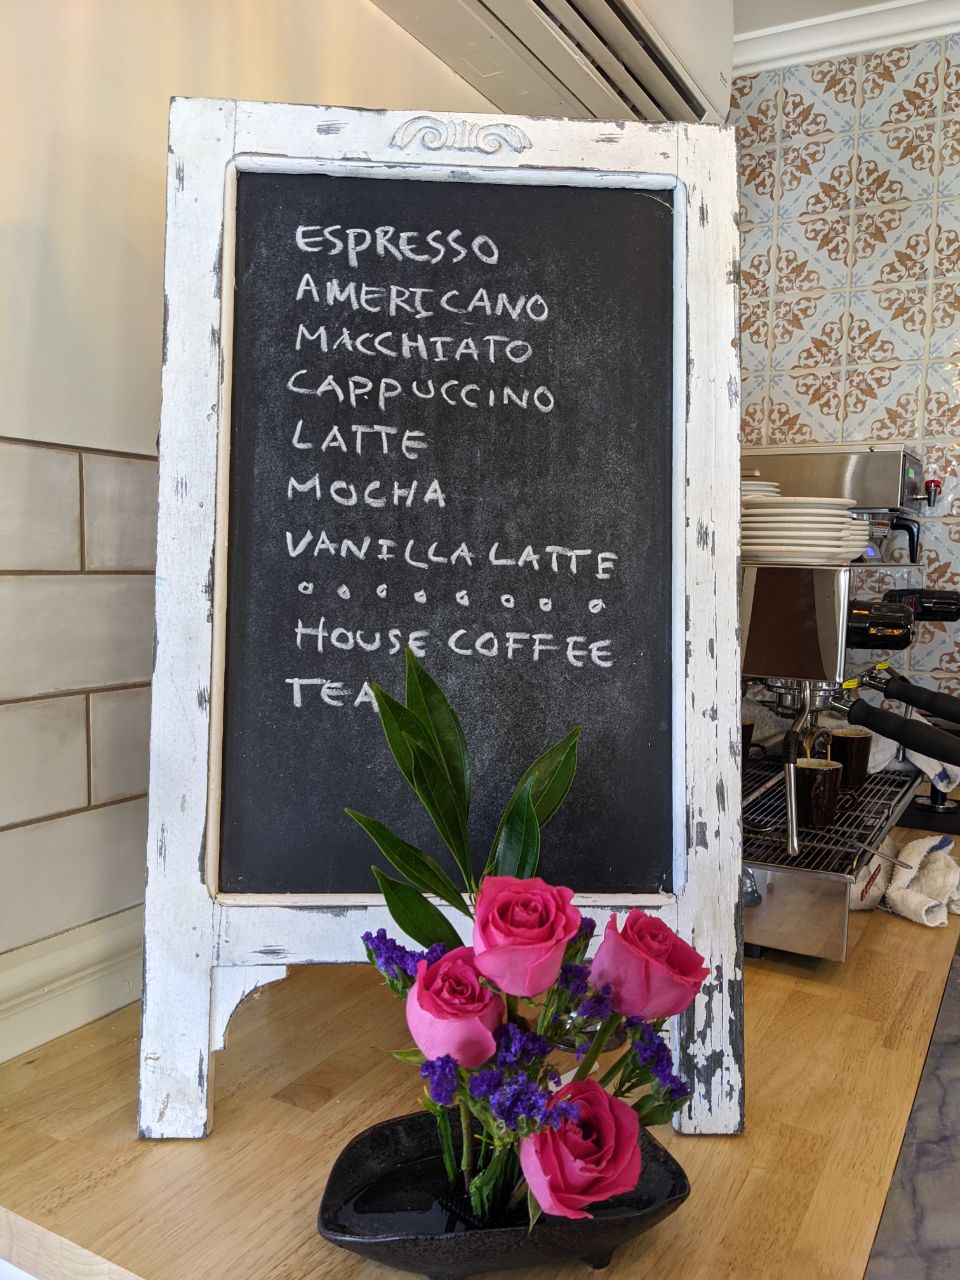 ESPRESSO
AMERICANO
MACCHIATO
CAPPUCCINO
LATTE
MOCHA
VANILLA LATTE
HOUSE COFFEE
TEA